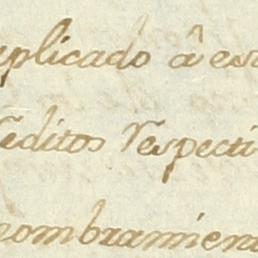 aplicado â es
reditos respecti
nombramien